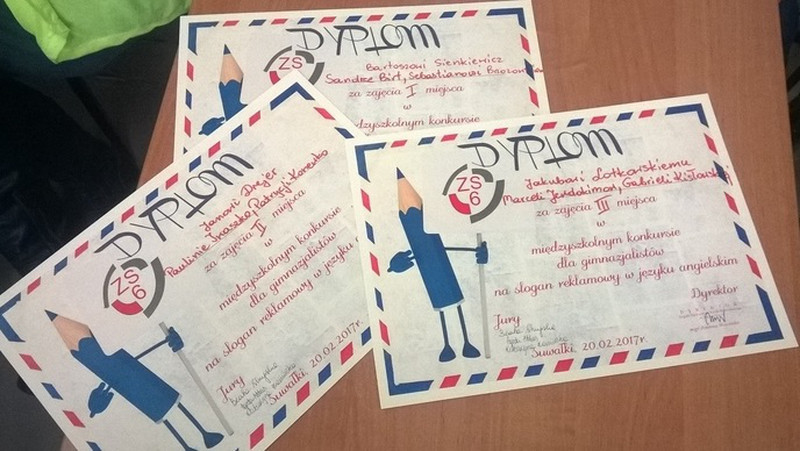 DYPLOM
ZS
Bartoszowi Sienkiewicz
Sandrze Birt, Sebastianowi
za zajęcia I miejsca
w
międzyszkolnym konkursie
DYPLOM
ZS
6
Janowi Drejer
Paulinie
za zajęcia II miejsca
w
międzyszkolnym konkursie
dla gimnazjalistów
na slogan reklamowy w języku
Jury
Suwałki, 20.02.2017r.
DYPLOM
ZS
6
Jakubowi Lotkowskiemu
Marceli Gabrieli
za zajęcia III miejsca
w
międzyszkolnym konkursie
dla gimnazjalistów
na slogan reklamowy w języku angielskim
Dyrektor
Jury
Suwałki, 20.02.2017r.